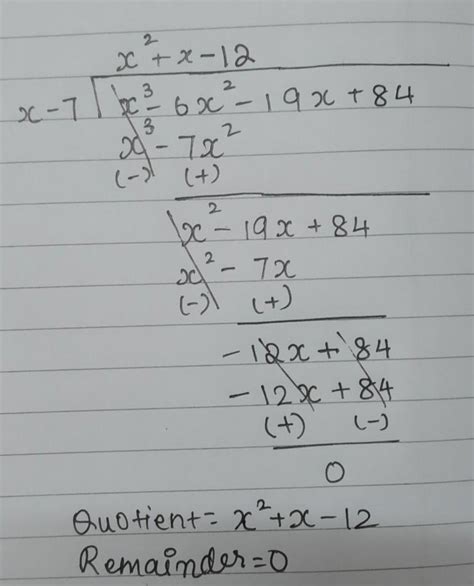 x² + x - 12
x - 7 x³ - 6x² - 19x + 84
x³ - 7x²
(-) (+)
x² - 19x + 84
x² - 7x
(-) (+)
-12x + 84
-12x + 84
(+) (-)
0
Quotient = x² + x - 12
Remainder = 0